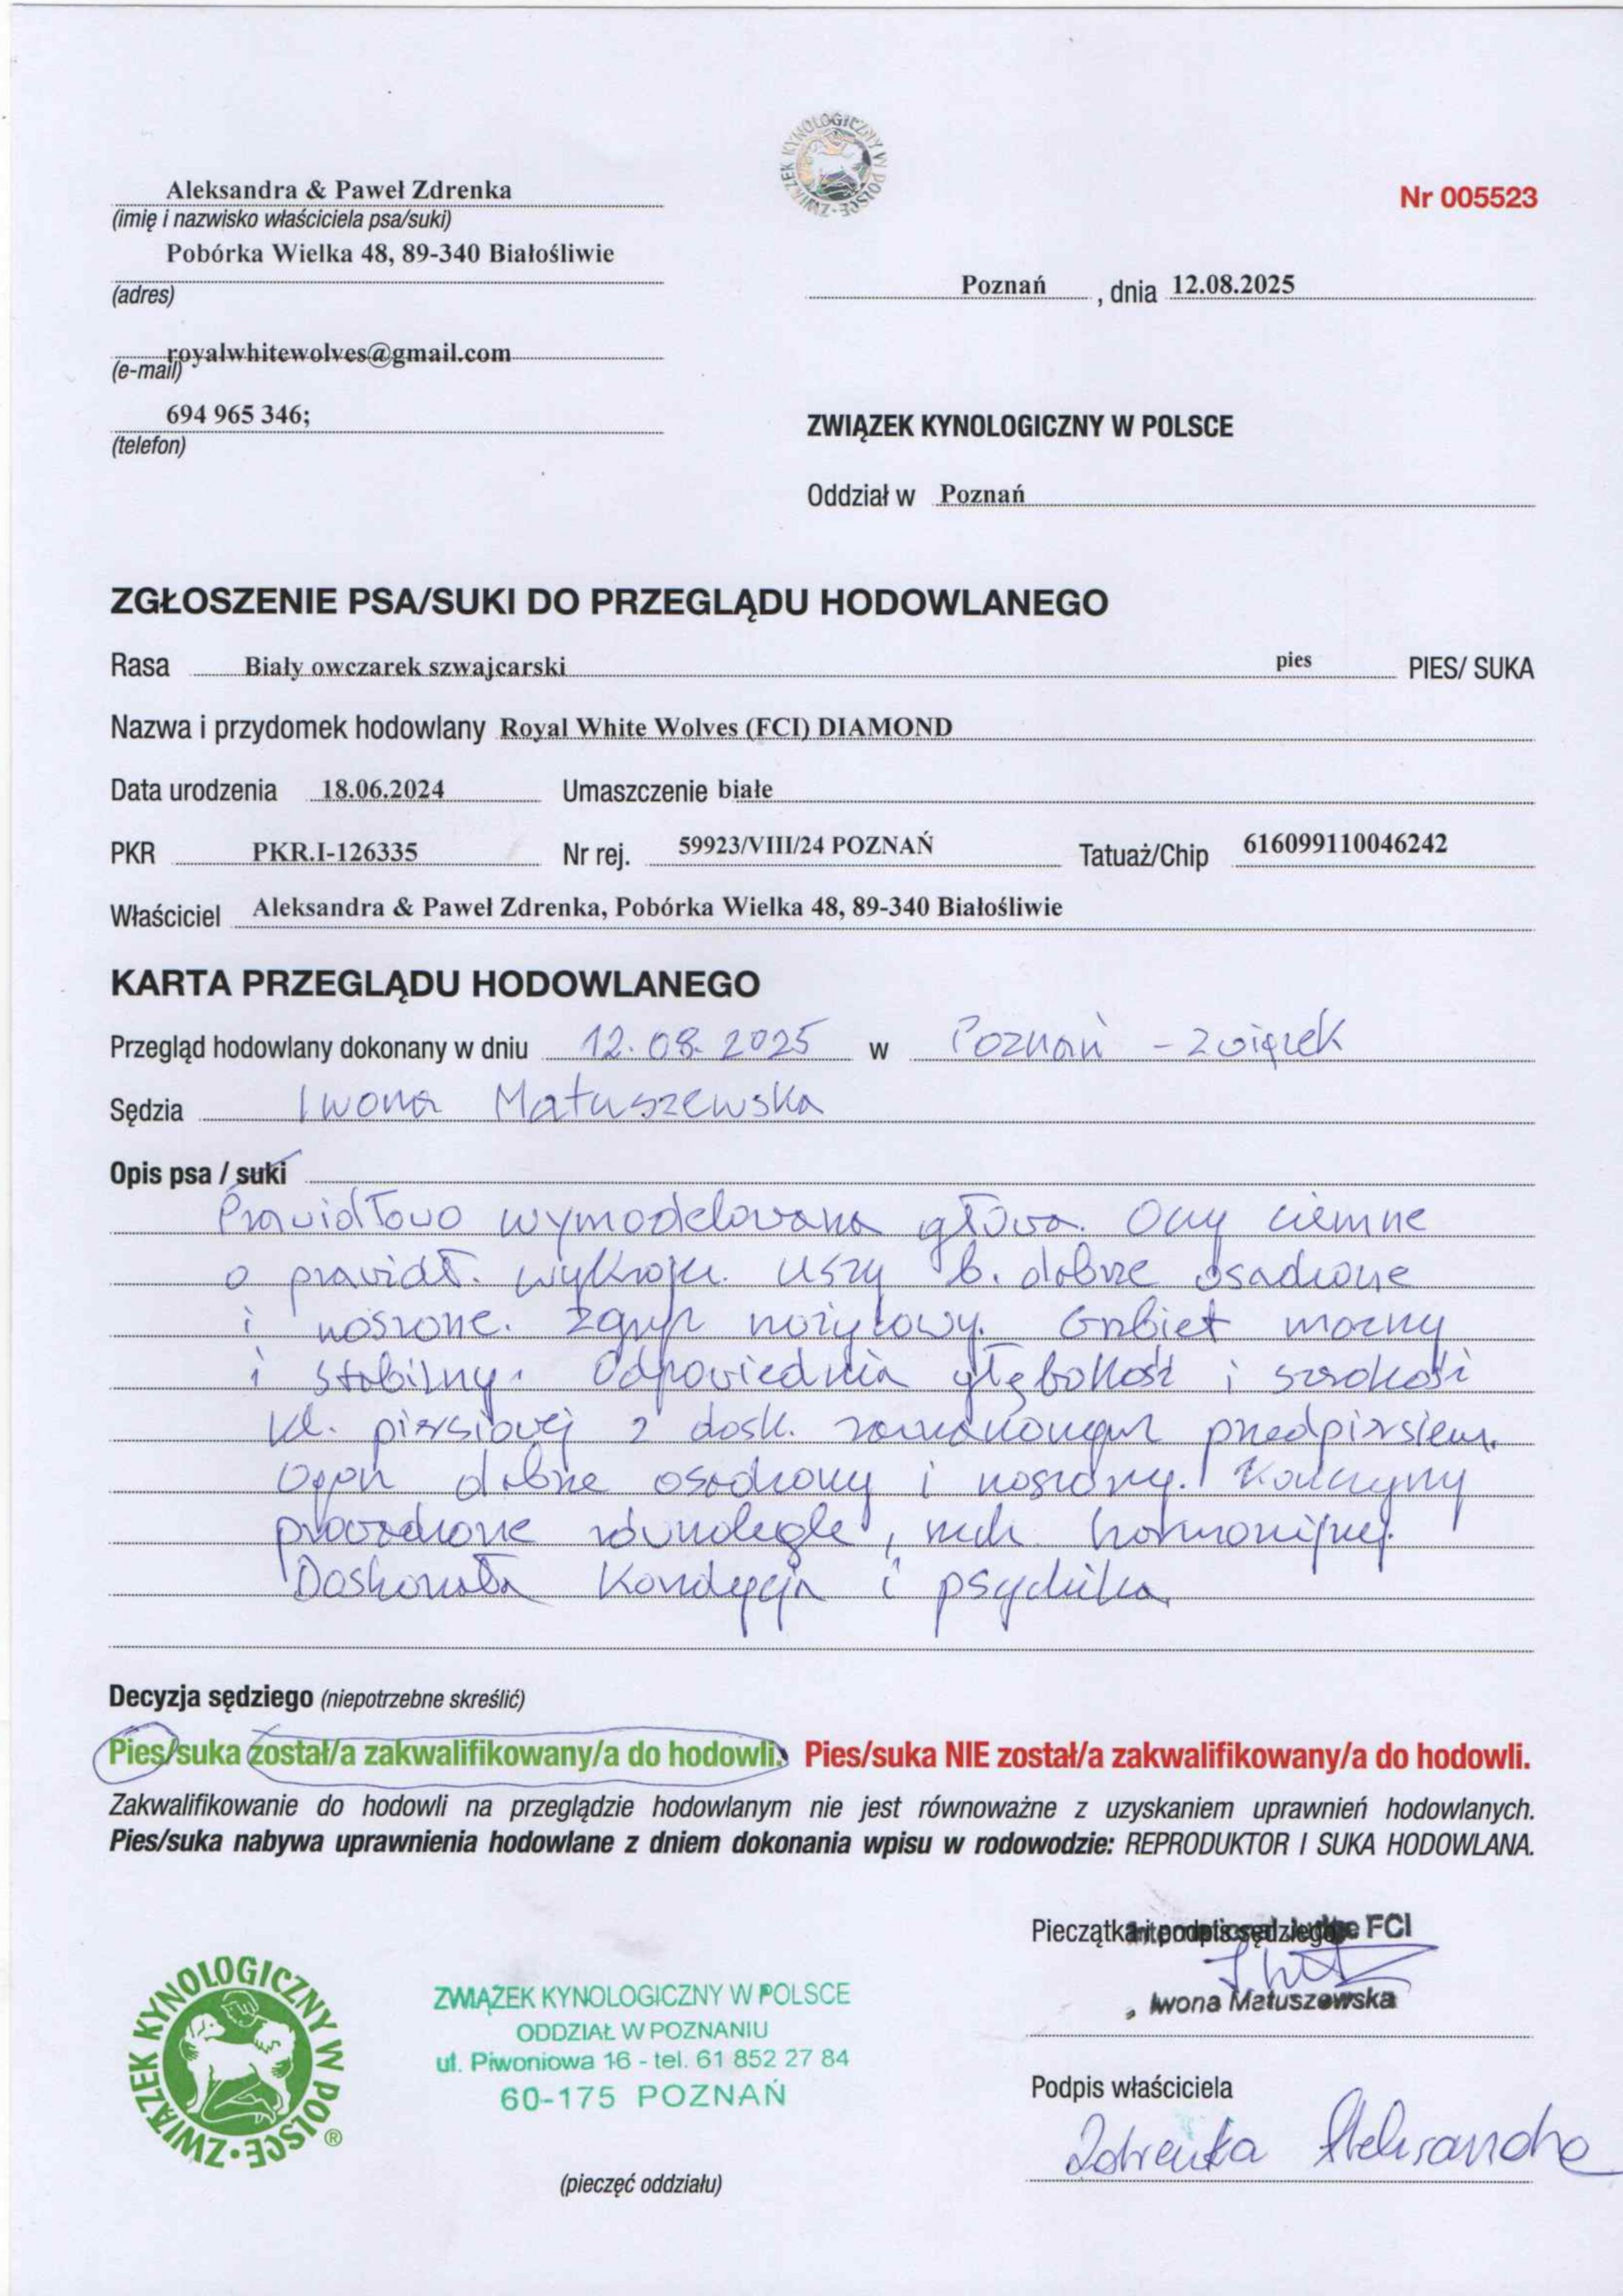 ZWIĄZEK KYNOLOGICZNY W POLSCE
Aleksandra & Paweł Zdrenka
(imię i nazwisko właściciela psa/suki)
Nr 005523
Pobórka Wielka 48, 89-340 Białośliwie
(adres)
Poznań, dnia 12.08.2025
royalwhitewolves@gmail.com
(e-mail)
694 965 346;
(telefon)
ZWIĄZEK KYNOLOGICZNY W POLSCE
Oddział w Poznań
ZGŁOSZENIE PSA/SUKI DO PRZEGLĄDU HODOWLANEGO
Rasa Biały owczarek szwajcarski pies PIES/ SUKA
Nazwa i przydomek hodowlany Royal White Wolves (FCI) DIAMOND
Data urodzenia 18.06.2024 Umaszczenie białe
PKR PKR.I-126335 Nr rej. 59923/VIII/24 POZNAŃ Tatuaż/Chip 616099110046242
Właściciel Aleksandra & Paweł Zdrenka, Pobórka Wielka 48, 89-340 Białośliwie
KARTA PRZEGLĄDU HODOWLANEGO
Przegląd hodowlany dokonany w dniu 12.08.2025 w Poznań - związek
Sędzia Iwona Matuszewska
Opis psa / suki
Prawidłowo wymodelowana głowa. Oczy ciemne
o prawidł. wykroju. Uszy b. dobrze osadzone
i noszone. Zgryz nożycowy. Grzbiet mocny
i stabilny. Odpowiednia głębokość i szerokość
kl. piersiowej z dosk. zaznaczonym przedpiersiem.
Ogon dobrze osadzony i noszony. Kończyny
prowadzone równolegle, ruch harmonijny.
Doskonała kondycja i psychika.
Decyzja sędziego (niepotrzebne skreślić)
Pies/suka został/a zakwalifikowany/a do hodowli. Pies/suka NIE został/a zakwalifikowany/a do hodowli.
Zakwalifikowanie do hodowli na przeglądzie hodowlanym nie jest równoważne z uzyskaniem uprawnień hodowlanych.
Pies/suka nabywa uprawnienia hodowlane z dniem dokonania wpisu w rodowodzie: REPRODUKTOR I SUKA HODOWLANA.
Pieczątka i podpis sędziego
International Judge FCI
Iwona Matuszewska
ZWIĄZEK KYNOLOGICZNY W POLSCE ®
ZWIĄZEK KYNOLOGICZNY W POLSCE
ODDZIAŁ W POZNANIU
ul. Piwoniowa 16 - tel. 61 852 27 84
60-175 POZNAŃ
(pieczęć oddziału)
Podpis właściciela
Zdrenka Aleksandra